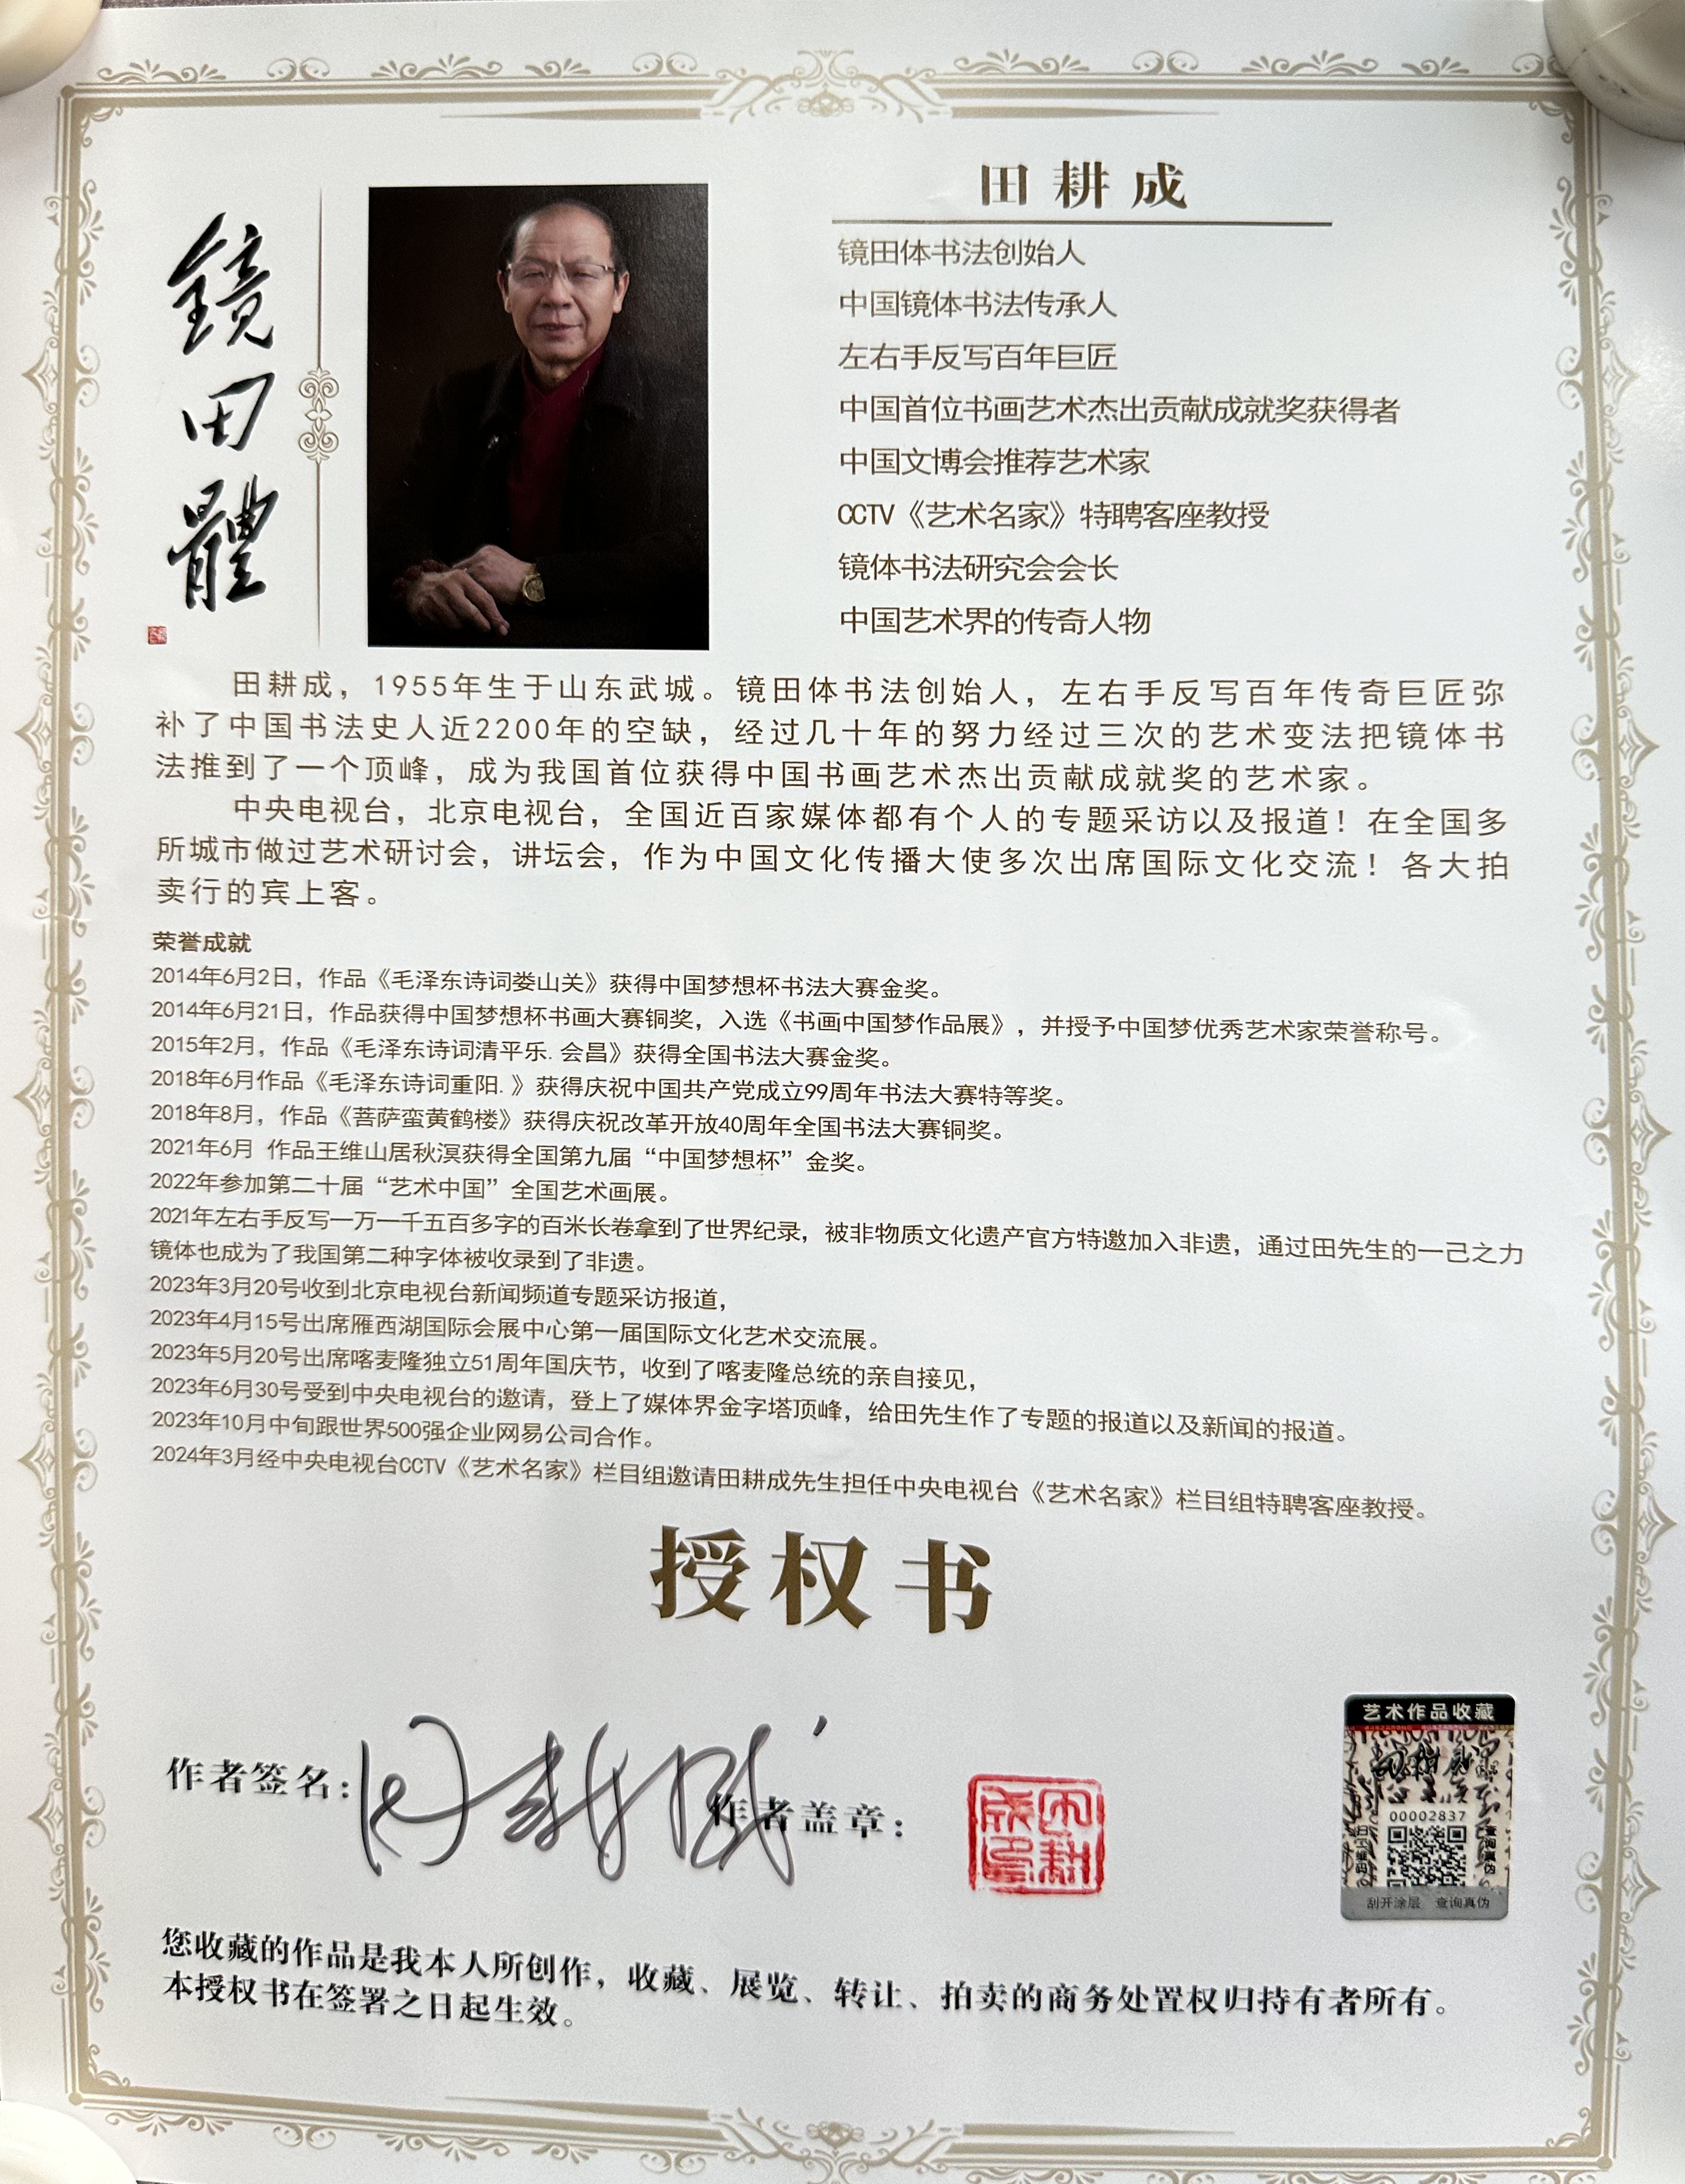 鏡田體
田耕成
镜田体书法创始人
中国镜体书法传承人
左右手反写百年巨匠
中国首位书画艺术杰出贡献成就奖获得者
中国文博会推荐艺术家
CCTV《艺术名家》特聘客座教授
镜体书法研究会会长
中国艺术界的传奇人物
田耕成，1955年生于山东武城。镜田体书法创始人，左右手反写百年传奇巨匠弥
补了中国书法史人近2200年的空缺，经过几十年的努力经过三次的艺术变法把镜体书
法推到了一个顶峰，成为我国首位获得中国书画艺术杰出贡献成就奖的艺术家。
中央电视台，北京电视台，全国近百家媒体都有个人的专题采访以及报道！在全国多
所城市做过艺术研讨会，讲坛会，作为中国文化传播大使多次出席国际文化交流！各大拍
卖行的宾上客。
荣誉成就
2014年6月2日，作品《毛泽东诗词娄山关》获得中国梦想杯书法大赛金奖。
2014年6月21日，作品获得中国梦想杯书画大赛铜奖，入选《书画中国梦作品展》，并授予中国梦优秀艺术家荣誉称号。
2015年2月，作品《毛泽东诗词清平乐.会昌》获得全国书法大赛金奖。
2018年6月作品《毛泽东诗词重阳.》获得庆祝中国共产党成立99周年书法大赛特等奖。
2018年8月，作品《菩萨蛮黄鹤楼》获得庆祝改革开放40周年全国书法大赛铜奖。
2021年6月 作品王维山居秋溟获得全国第九届“中国梦想杯”金奖。
2022年参加第二十届“艺术中国”全国艺术画展。
2021年左右手反写一万一千五百多字的百米长卷拿到了世界纪录，被非物质文化遗产官方特邀加入非遗，通过田先生的一己之力
镜体也成为了我国第二种字体被收录到了非遗。
2023年3月20号收到北京电视台新闻频道专题采访报道，
2023年4月15号出席雁西湖国际会展中心第一届国际文化艺术交流展。
2023年5月20号出席喀麦隆独立51周年国庆节，收到了喀麦隆总统的亲自接见，
2023年6月30号受到中央电视台的邀请，登上了媒体界金字塔顶峰，给田先生作了专题的报道以及新闻的报道。
2023年10月中旬跟世界500强企业网易公司合作。
2024年3月经中央电视台CCTV《艺术名家》栏目组邀请田耕成先生担任中央电视台《艺术名家》栏目组特聘客座教授。
授权书
作者签名：田耕成
作者盖章：
田耕成印
艺术作品收藏
田耕成
00002837
扫二维码
查询真伪
刮开涂层 查询真伪
您收藏的作品是我本人所创作，收藏、展览、转让、拍卖的商务处置权归持有者所有。
本授权书在签署之日起生效。